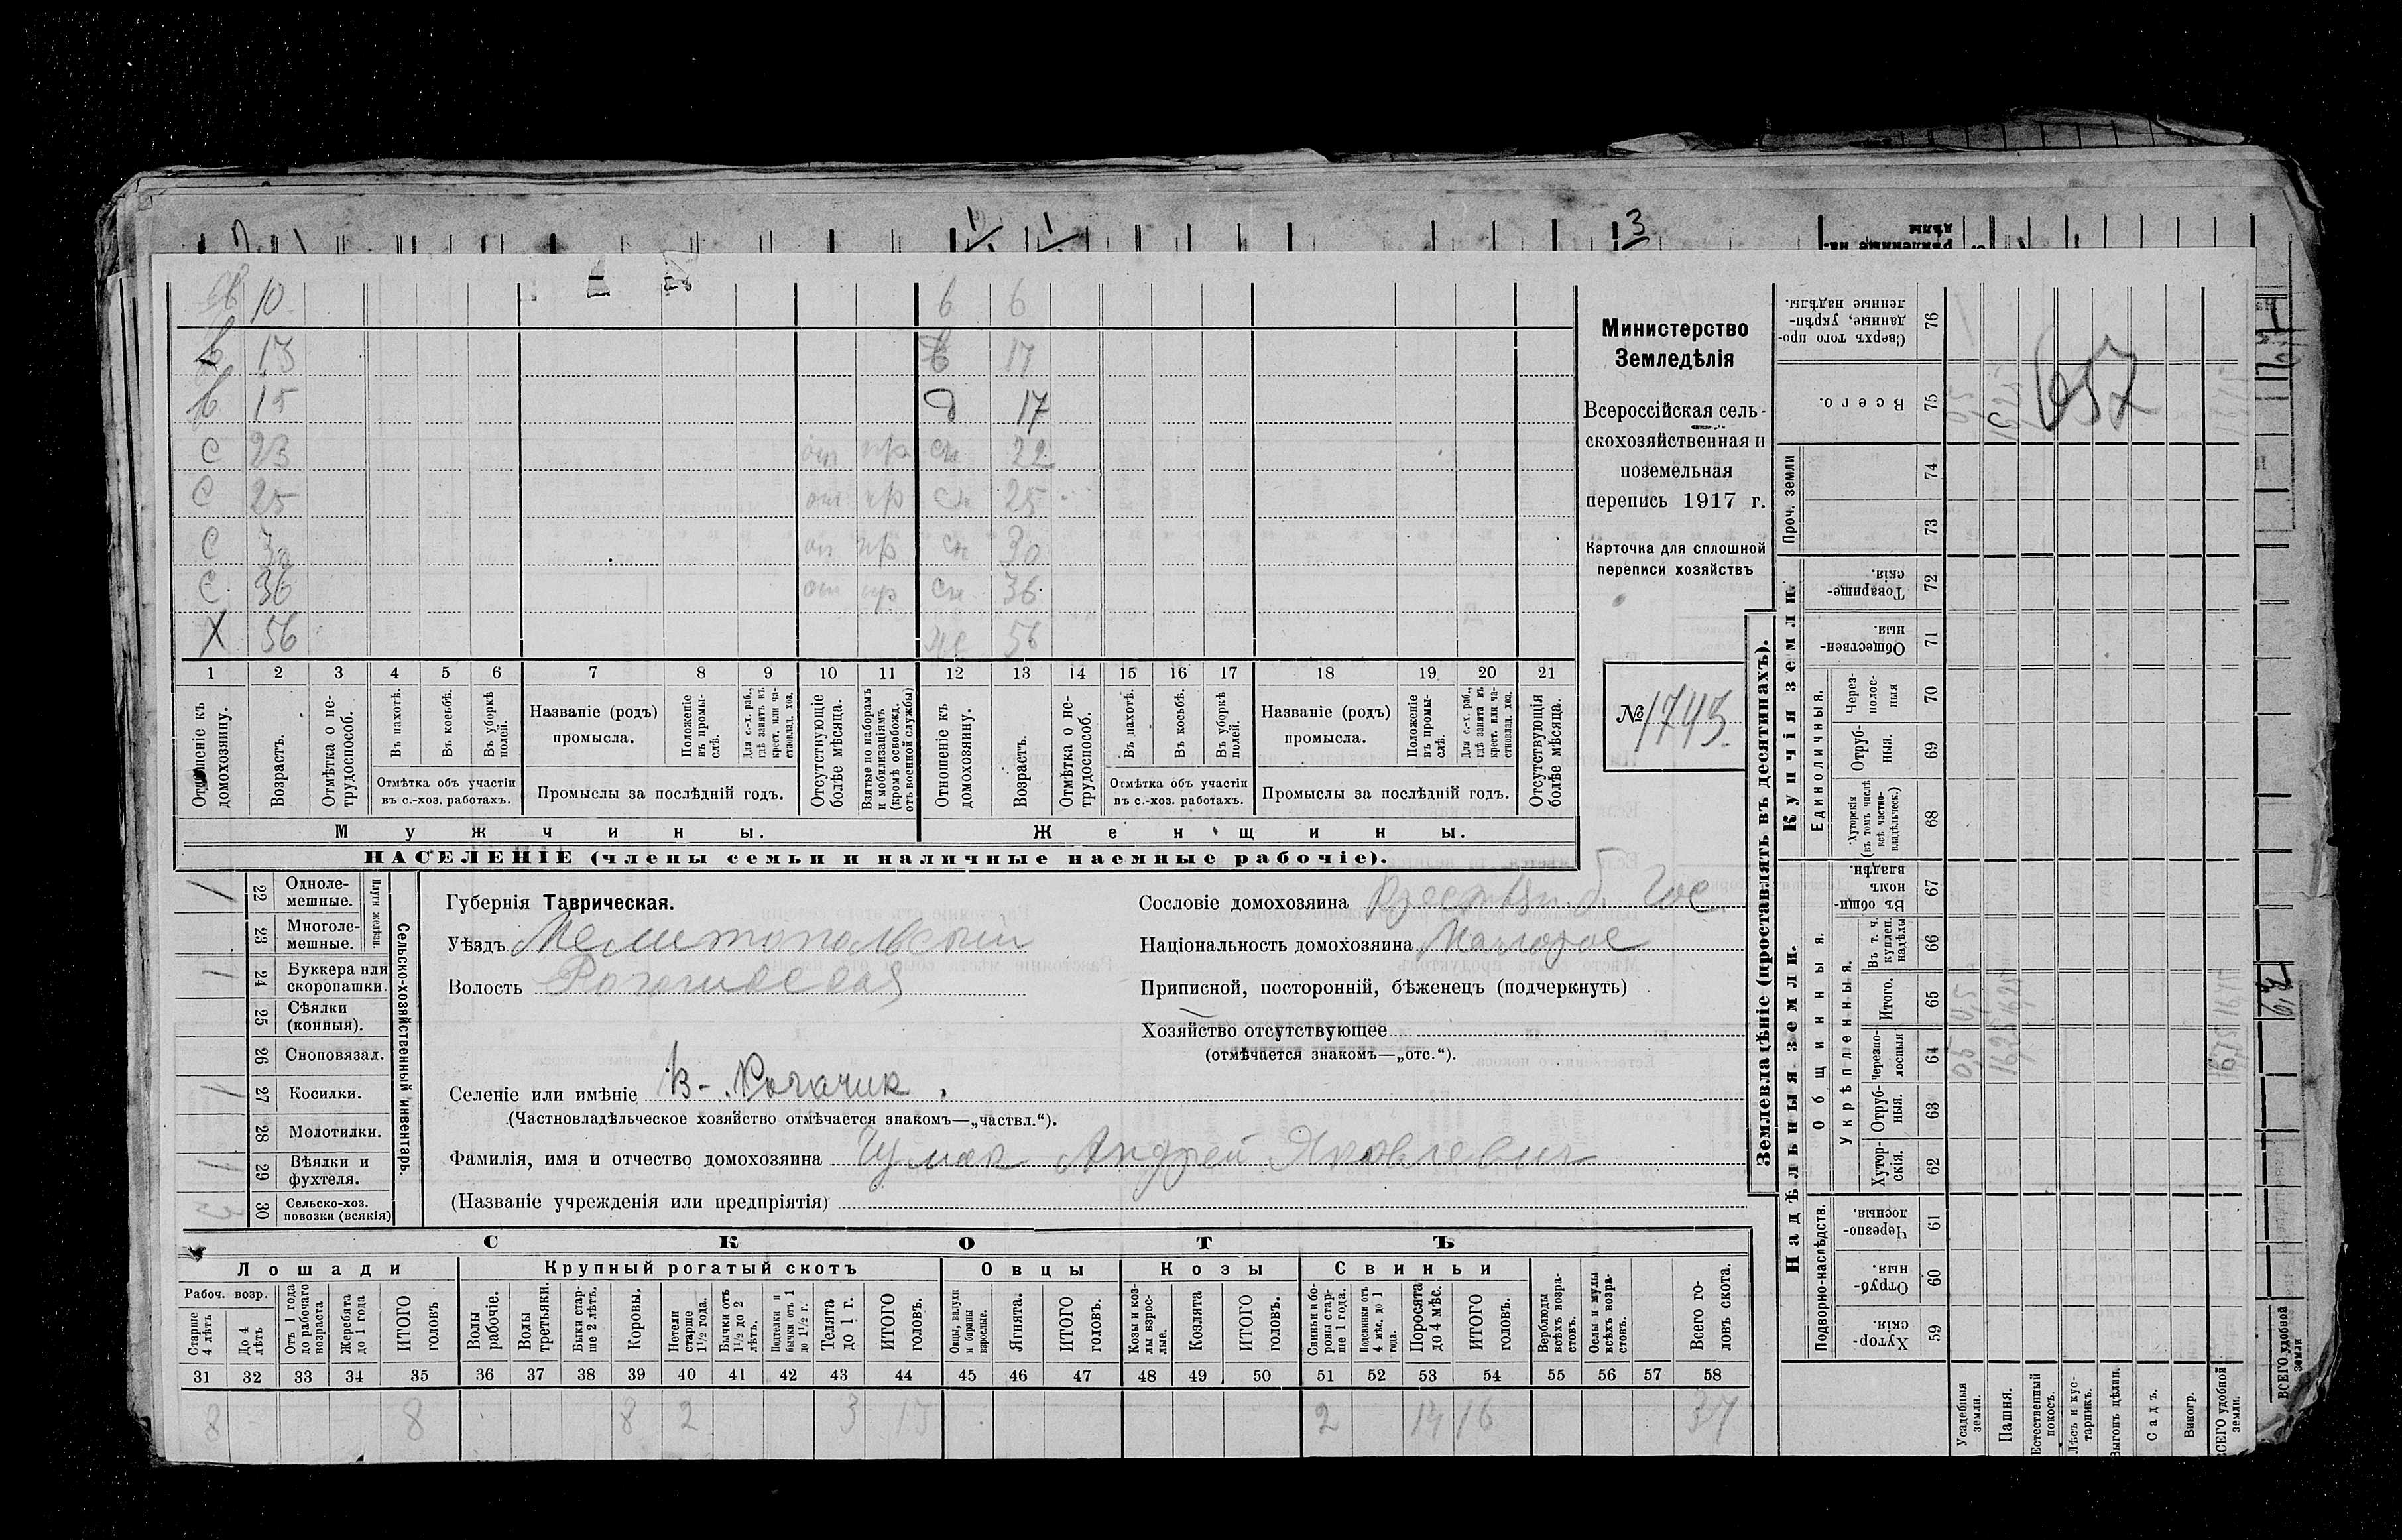 10 6
в 13 17
в 15 д 17
с 23 от пр сн 22
с 25 от пр сн 25
с 30 от пр сн 30
с 36 от пр сн 36
Х 56 же 56
1 2 3 4 5 6 7 8 9 10 11 12 13 14 15 16 17 18 19 20 21
Отношеніе къ домохозяину.
Возрастъ.
Отмѣтка о не-трудоспособ.
Въ пахотѣ.
Въ косьбѣ.
Въ уборкѣ полей.
Отмѣтка объ участіи въ с.-хоз. работахъ.
Названіе (родъ) промысла.
Положеніе въ промы-слѣ.
Для с.-х. раб., гдѣ занятъ въ крест. или ча-стновлад. хоз.
Промыслы за послѣдній годъ.
Отсутствующіе болѣе мѣсяца.
Взятые по наборамъ и мобилизаціямъ (кромѣ освобожд. отъ военной службы)
Отношеніе къ домохозяину.
Возрастъ.
Отмѣтка о не-трудоспособ.
Въ пахотѣ.
Въ косьбѣ.
Въ уборкѣ полей.
Отмѣтка объ участіи въ с.-хоз. работахъ.
Названіе (родъ) промысла.
Положеніе въ промы-слѣ.
Для с.-х. раб., гдѣ занята въ крест. или ча-стновлад. хоз.
Промыслы за послѣдній годъ.
Отсутствующія болѣе мѣсяца.
Мужчины. Женщины.
НАСЕЛЕНІЕ (члены семьи и наличные наемные рабочіе).
Министерство
Земледѣлія
Всероссійская сель-
скохозяйственная и
поземельная
перепись 1917 г.
Карточка для сплошной
переписи хозяйствъ
№ 1743.
1 22 Одноле-мешные.
23 Многоле-мешные.
Плуги желѣзн.
1 24 Буккера или скоропашки.
25 Сѣялки (конныя).
26 Сноповязал.
1 27 Косилки.
28 Молотилки.
1 29 Вѣялки и фухтеля.
3 30 Сельско-хоз. повозки (всякія)
Сельско-хозяйственный инвентарь.
Губернія Таврическая.
Уѣздъ Мелитопольскій
Волость Рогачикская
Селеніе или имѣніе В-.Рогачик.
(Частновладѣльческое хозяйство отмѣчается знакомъ—„частвл.“).
Фамилія, имя и отчество домохозяина Чумак Андрей Яковлевич
(Названіе учрежденія или предпріятія)
Сословіе домохозяина Крестян. б. Гос.
Національность домохозяина Малорос
Приписной, посторонній, бѣженецъ (подчеркнуть)
Хозяйство отсутствующее
(отмѣчается знакомъ—„отс.“).
СКОТЪ
Лошади Крупный рогатый скотъ Овцы Козы Свиньи
Рабоч. возр.
Старше 4 лѣтъ
До 4 лѣтъ
Отъ 1 года до рабочаго возраста
Жеребята до 1 года
ИТОГО головъ
Волы рабочіе.
Волы третьяки.
Быки стар-ше 2 лѣтъ.
Коровы.
Нетели старше 1½ года.
Бычки отъ 1½ до 2 лѣтъ.
Подтелки и бычки отъ 1 до 1½ г.
Телята до 1 г.
ИТОГО головъ.
Овцы, валухи и бараны взрослые.
Ягнята.
ИТОГО головъ.
Козы и коз-лы взрос-лые.
Козлята
ИТОГО головъ.
Свиньи и бо-ровы стар-ше 1 года.
Подсвинки отъ 4 мѣс. до 1 года.
Поросята до 4 мѣс.
ИТОГО головъ.
Верблюды всѣхъ возра-стовъ.
Ослы и мулы всѣхъ возра-стовъ.
Всего го-ловъ скота.
31 32 33 34 35 36 37 38 39 40 41 42 43 44 45 46 47 48 49 50 51 52 53 54 55 56 57 58
8 8 8 2 3 13 2 14 16 37
Землевладѣніе (проставлять въ десятинахъ).
Купчія земли.
Надѣльныя земли.
Сверхъ того про-данные, укрѣп-ленные надѣлы. 76
Всего. 75
Проч. земли 74 73
Товарище-скія. 72
Обществен-ныя. 71
Единоличныя.
Через-полос-ныя 70
Отруб-ныя. 69
Хуторскія (въ томъ числѣ всѣ частно-владѣльческ.) 68
Общинныя.
Въ общи-номъ владѣн. 67
Укрѣпленныя.
Въ т. ч. куплен. надѣлы 66
Итого. 65
Черезпо-лосныя 64
Отруб-ныя. 63
Хутор-скія. 62
Подворно-наслѣдств.
Черезпо-лосныя. 61
Отруб-ныя. 60
Хутор-скія. 59
Усадебныя земли.
Пашня.
Естественный покосъ.
Лѣсъ и кус-тарникъ.
Выгонъ цѣлин.
Садъ.
Виногр.
ВСЕГО удобной земли.
0,5 16,25 16,75
657
ВСЕГО удобной земли